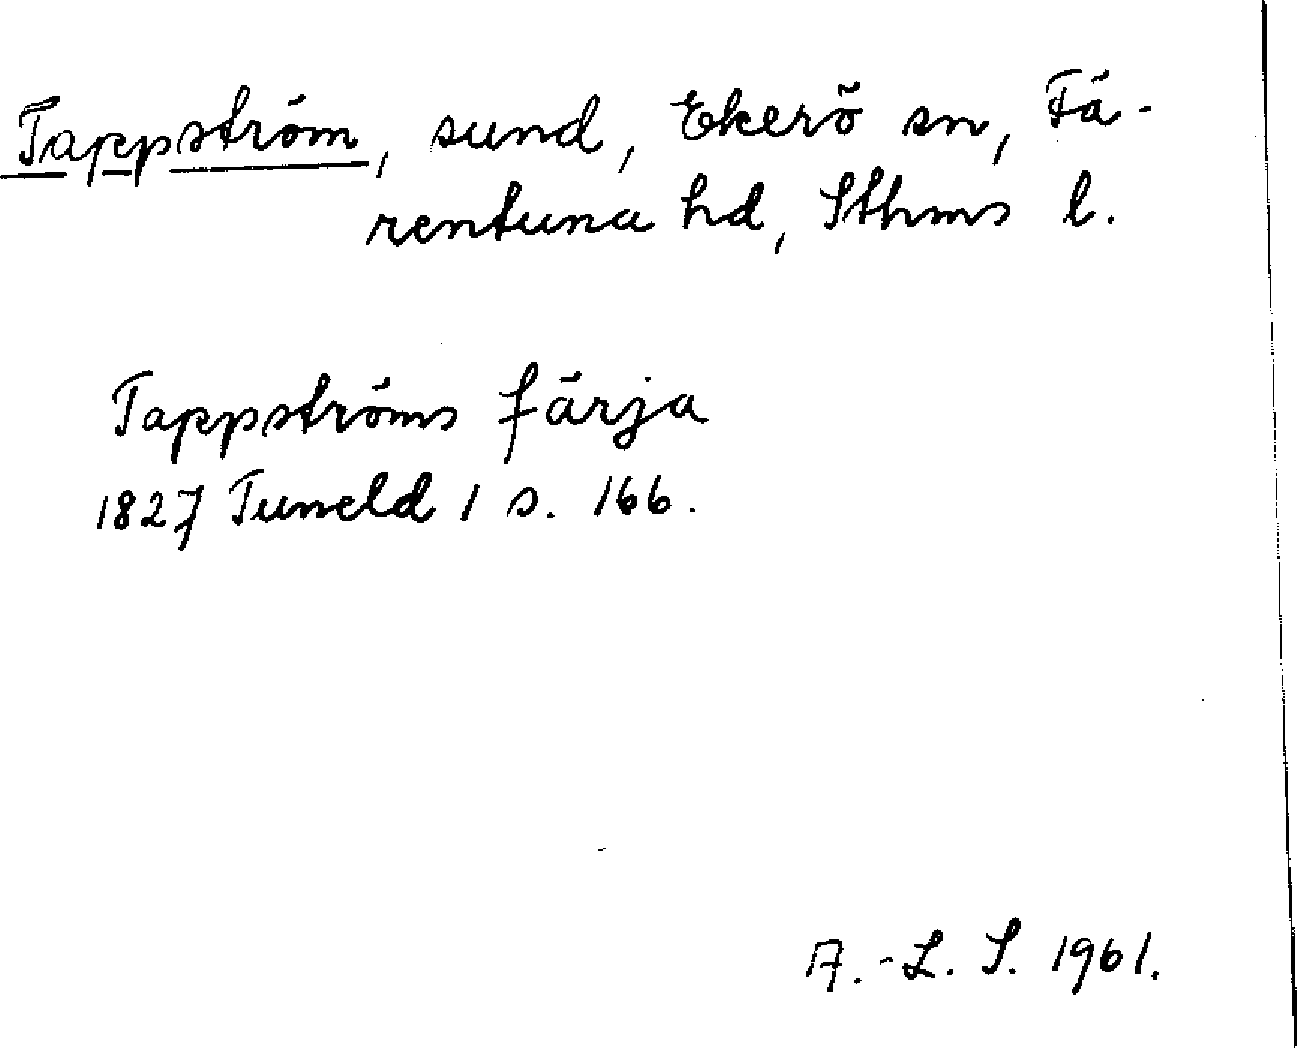 Tappström, sund, Ekerö sn, Fä-
rentuna hd, Sthms l.
Tappströms färja
1827 Tuneld 1 s. 166.
A.-L. S. 1961.